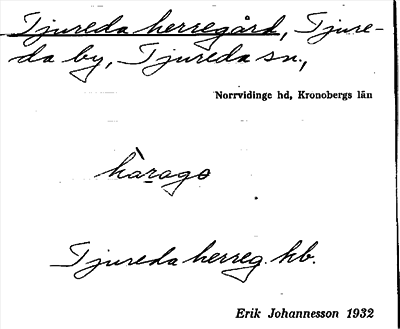 Tjureda herregård, Tjure-
da by, Tjureda sn.,
Norrvidinge hd, Kronobergs län
hàrago
Tjureda herreg. hb.
Erik Johannesson 1932